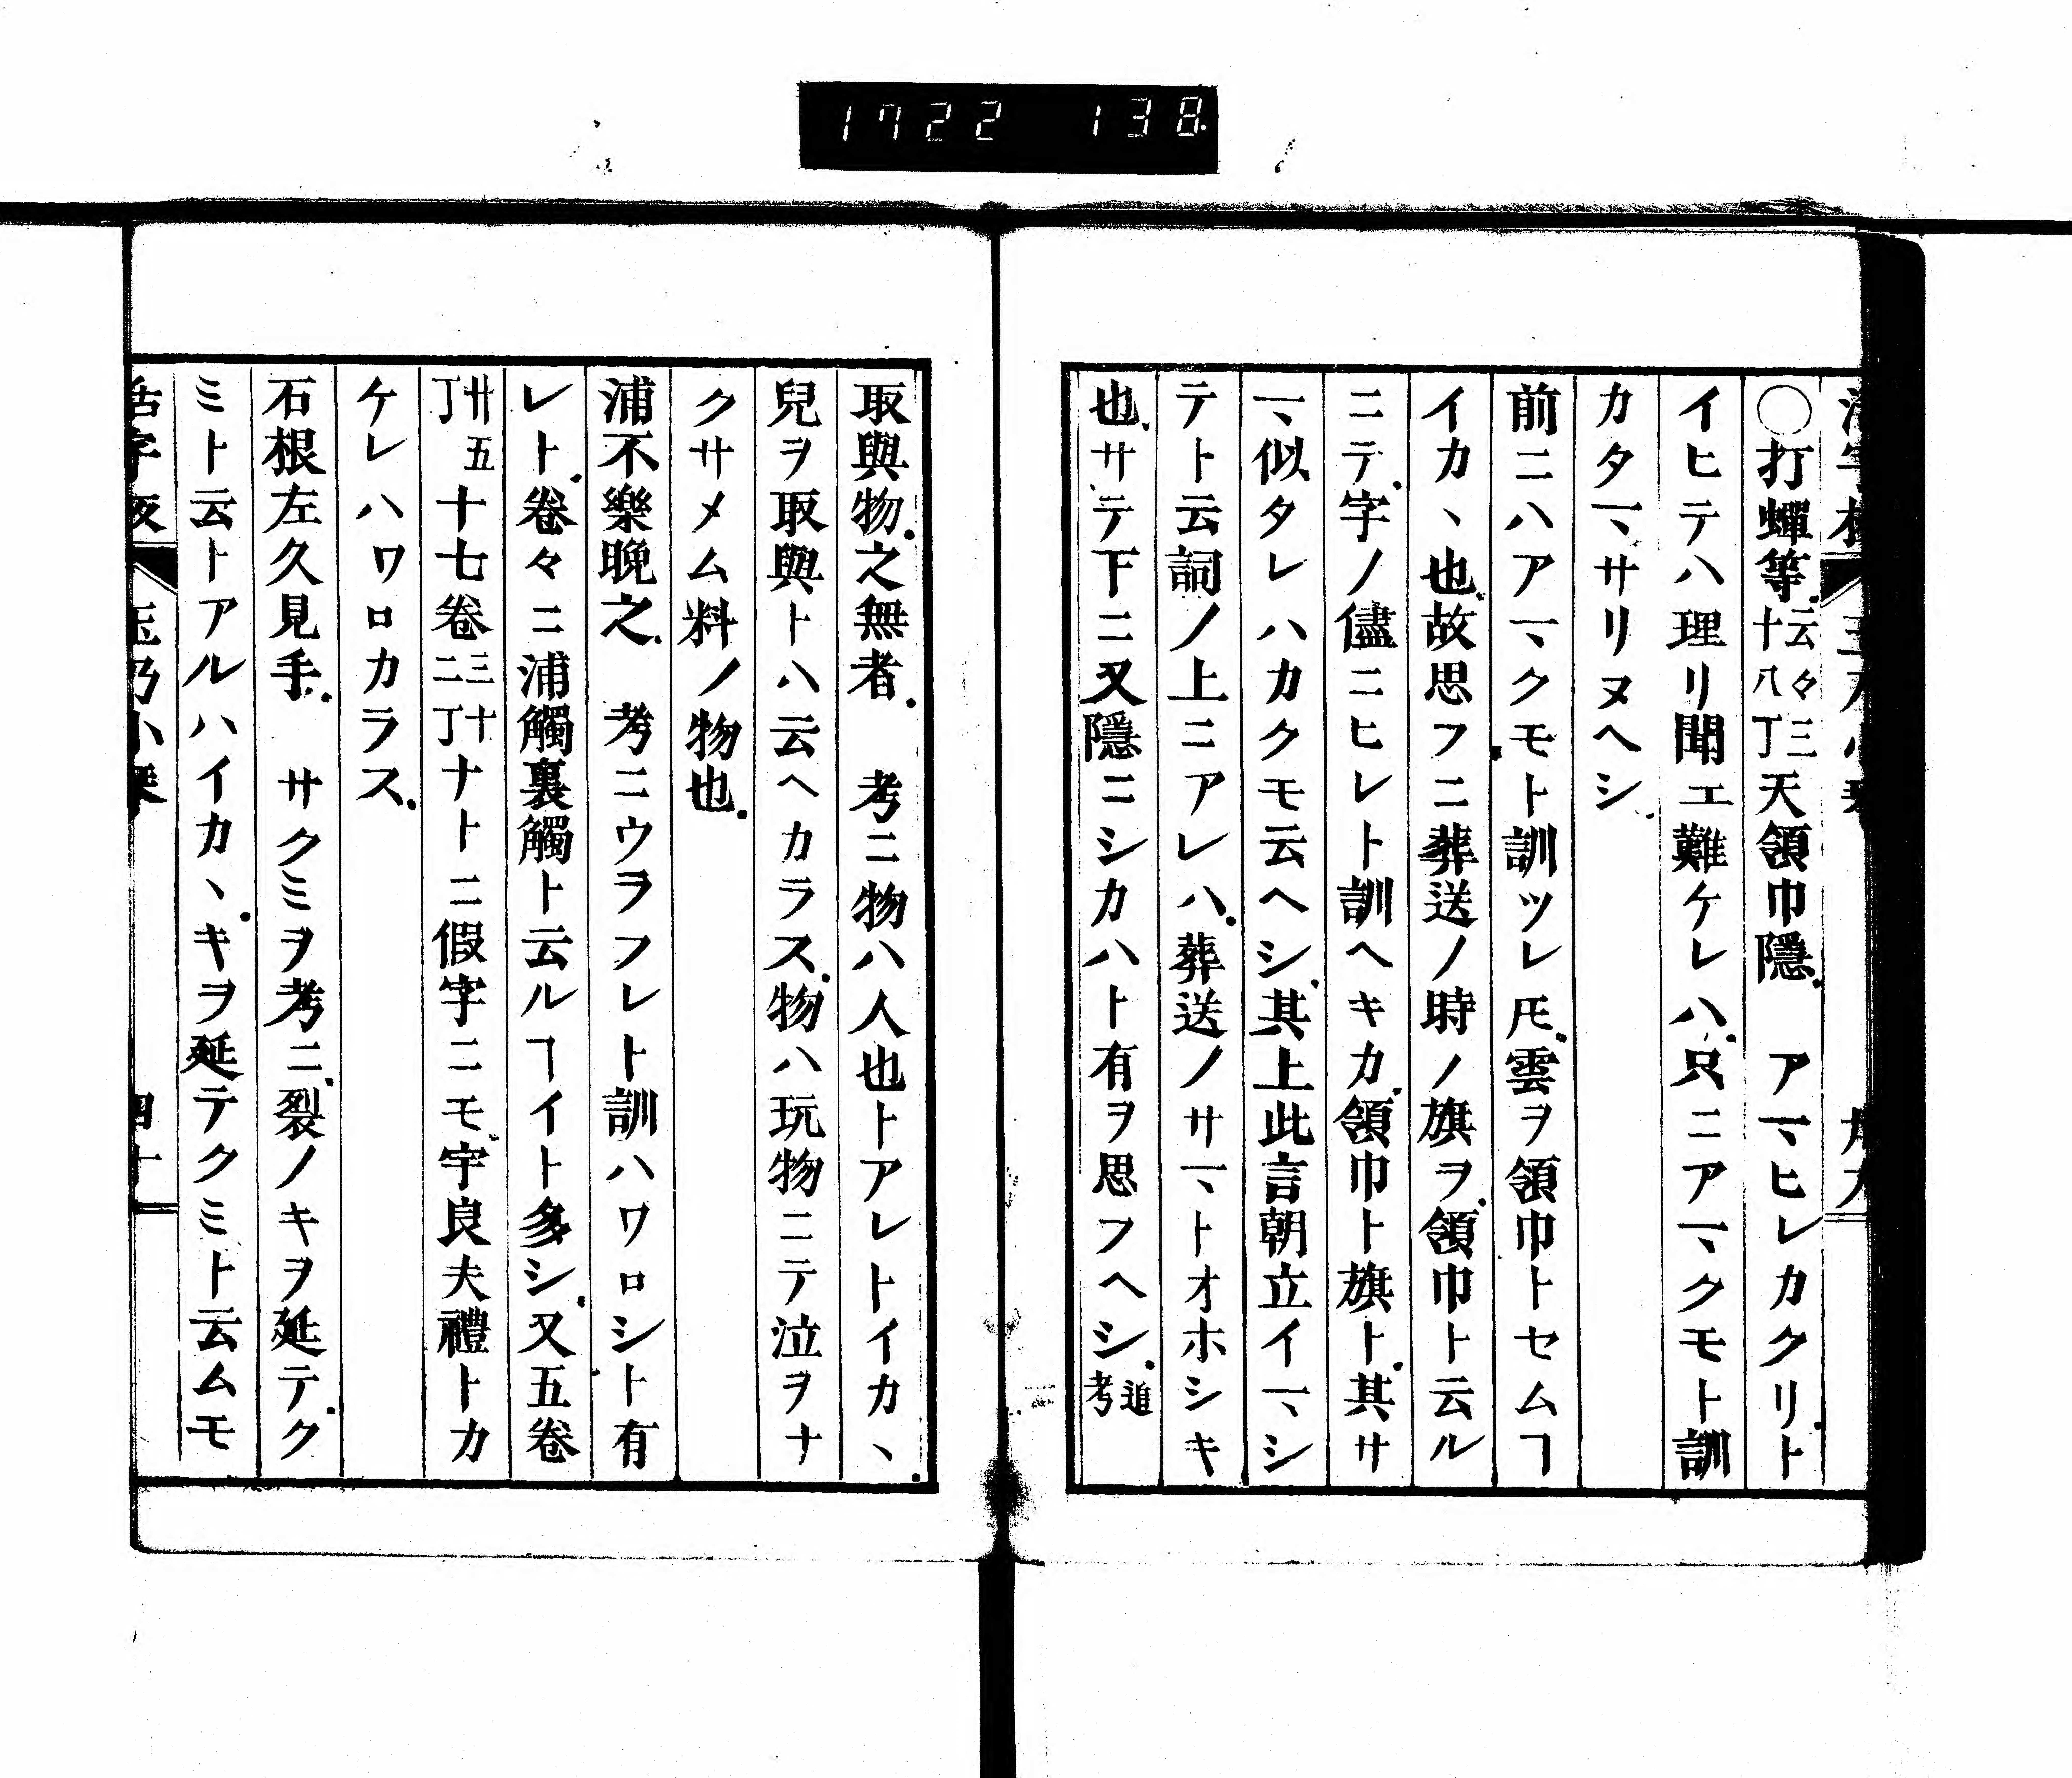 1722 138
〇打蟬等云々三十八丁天領巾隱 アマヒレカクリト
イヒテハ理リ聞エ難ケレハ只ニアマクモト訓
カタマサリヌヘシ
前ニハアマクモト訓ツレ𪜈雲ヲ領巾トセムヿ
イカヽ也故思フニ葬送ノ時ノ旗ヲ領巾ト云ル
ニテ字ノ儘ニヒレト訓ヘキカ領巾ト旗ト其サ
マ似タレハカクモ云ヘシ其上此言朝立イマシ
テト云詞ノ上ニアレハ葬送ノサマトオホシキ
也サテ下ニ又隱ニシカハト有ヲ思フヘシ道考
取與物之無者 考ニ物ハ人也トアレトイカヽ
兒ヲ取與トハ云ヘカラス物ハ玩物ニテ泣ヲナ
クサメム料ノ物也
浦不樂晩之 考ニウヲフレト訓ハワロシト有
レト卷々ニ浦觸裏觸ト云ルヿイト多シ又五卷
卅五丁十七卷三十二丁ナトニ假字ニモ宇良夫禮トカ
ケレハワロカラス
石根左久見手 サクミヲ考ニ裂ノキヲ延テク
ミト云トアルハイカヽキヲ延テクミト云ムモ
活字板 玉乃小琴 四十